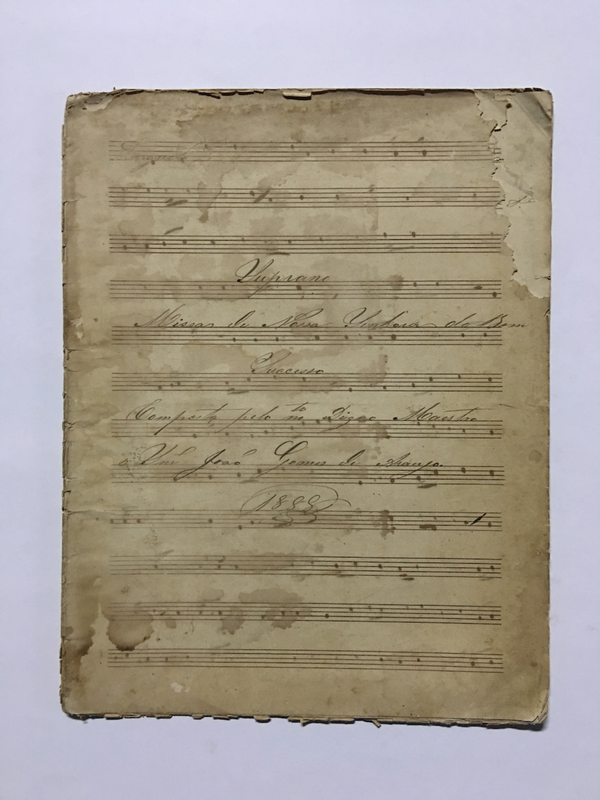 Suprano
Missa de Nossa Senhora do Bom
Successo
Composta pelo Digno Maestro
o Snr. João Gomes de Araujo.